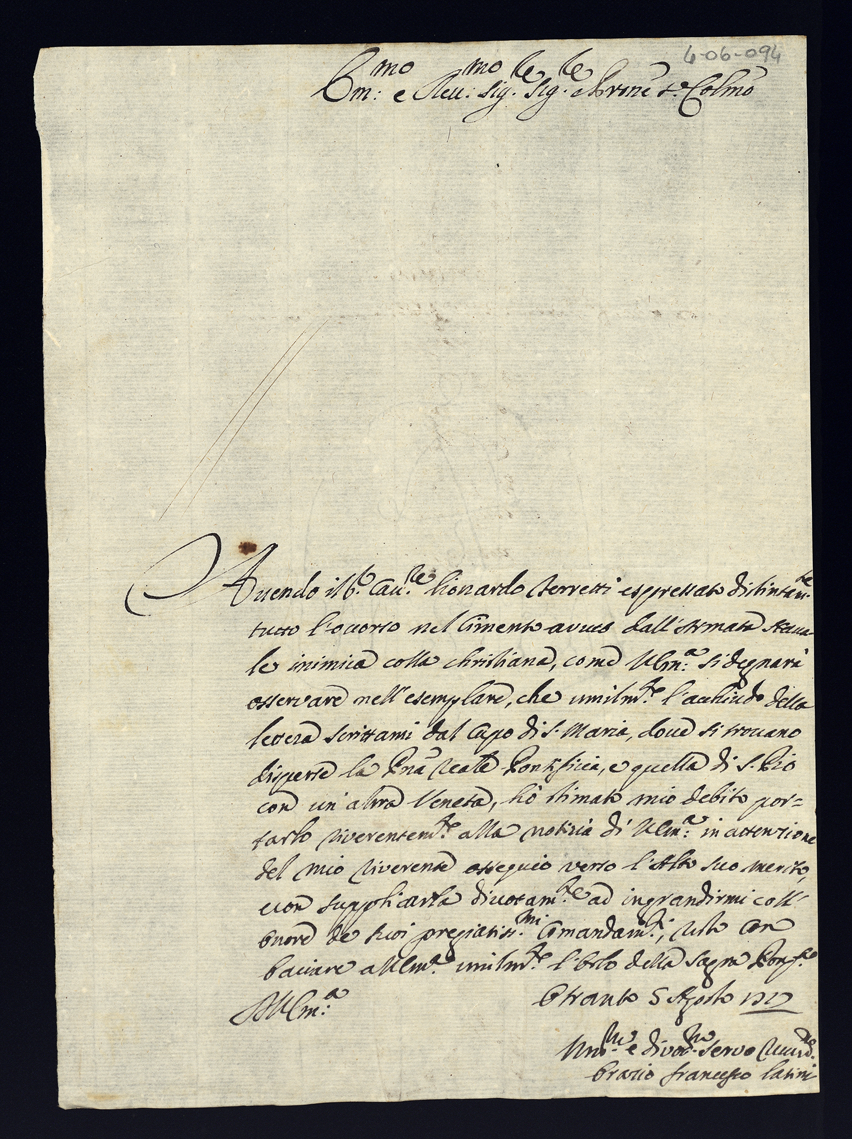 4-06-094
Em:mo e Reu:mo Sig.re Sig.re e Prone Colmo
Auendo il Sr. Cau.re Lionardo Ferretti espressato distintam.te
tutto l'occorso nel Cimento avuto dall'Armata Nava-
le inimica colla christiana, come V.Em:a si degnará
osservare nell'esemplare, che umilm.te l'acchiudo della
lettera scrittami dal Capo di S. Maria, doue si trouano
disperse la Pna Reale Pontificia, e quella di S. Pio
con un'altra Veneta, hò stimato mio debito por=
tarlo riverentem.te alla notizia di V.Em:a in attenzione
del mio riverente ossequio verso l'Alto suo merito,
e con supplicarla divotam.te ad ingrandirmi coll'
onore de suoi pregiatis:mi Comandam.ti, resto con
baciare a V.Em.a umilm.te l'Orlo della Sagra Porp.ra
Di V.Em:a
Otranto 5 Agosto 1717
Um:mo e divot:mo servo
Orazio Francesco Latini